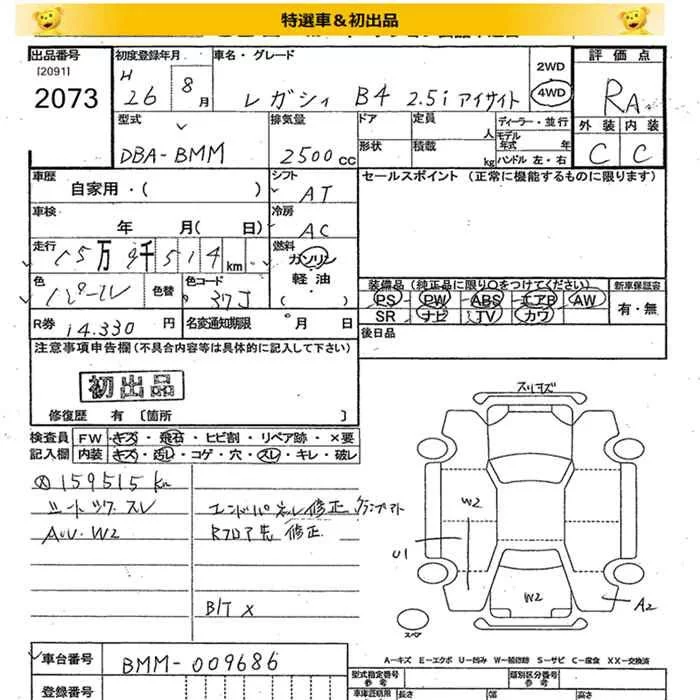 特選車＆初出品
出品番号 初度登録年月 車名・グレード 2WD 評価点
[2091] H
2073 26 8月 レガシィ B4 2.5i アイサイト 4WD RA
型式 排気量 ドア 定員 人 ディーラー・並行 外装 内装
DBA-BMM 2500cc 形状 積載 kg モデル年式 年 ハンドル 左・右 C C
車歴 自家用・( ) シフト AT セールスポイント (正常に機能するものに限ります)
車検 年 月( 日) 冷房 AC
走行 15万9千514km 燃料 ガソリン 軽油 ( )
色 パール 色替 色コード 37J
装備品 (純正品に限り○をつけてください) 新車保証書
PS PW ABS エアB AW 有・無
SR ナビ TV カワ
R券 14.330円 名変通知期限 月 日 後日品
注意事項申告欄 (不具合内容等は具体的に記入して下さい)
初出品
修復歴 有 [箇所 ]
検査員 FW キズ・飛石・ヒビ割・リペア跡・×要
記入欄 内装 キズ・汚レ・コゲ・穴・スレ・キレ・破レ
159515km
スレ エンドパネル修正
AUU・W2 Rフロア先 修正
B/T X
W2
U1
W2
A2
スペア
車台番号 BMM-009686
登録番号
A-キズ E-エクボ U-凹み W-補修跡 S-サビ C-腐食 XX-交換済
型式指定番号 参考 類別区分番号 参考
車庫証明用 参考 長さ 幅 高さ